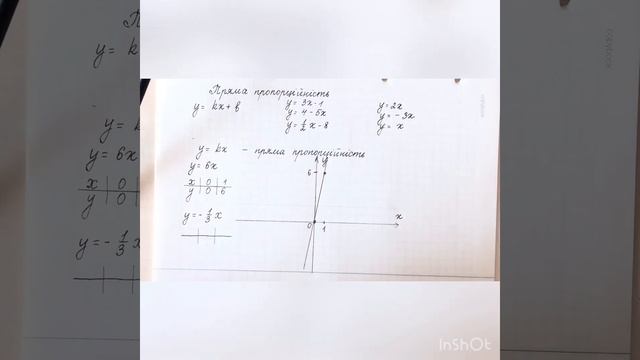 Пряма пропорційність
y = kx + b
y = 3x - 1
y = 4 - 5x
y = 1/2 x - 8
y = 2x
y = - 3x
y = x
y = kx - пряма пропорційність
y = 6x
x | 0 | 1
y | 0 | 6
y = - 1/3 x
y
6
0
1
x
InShOt